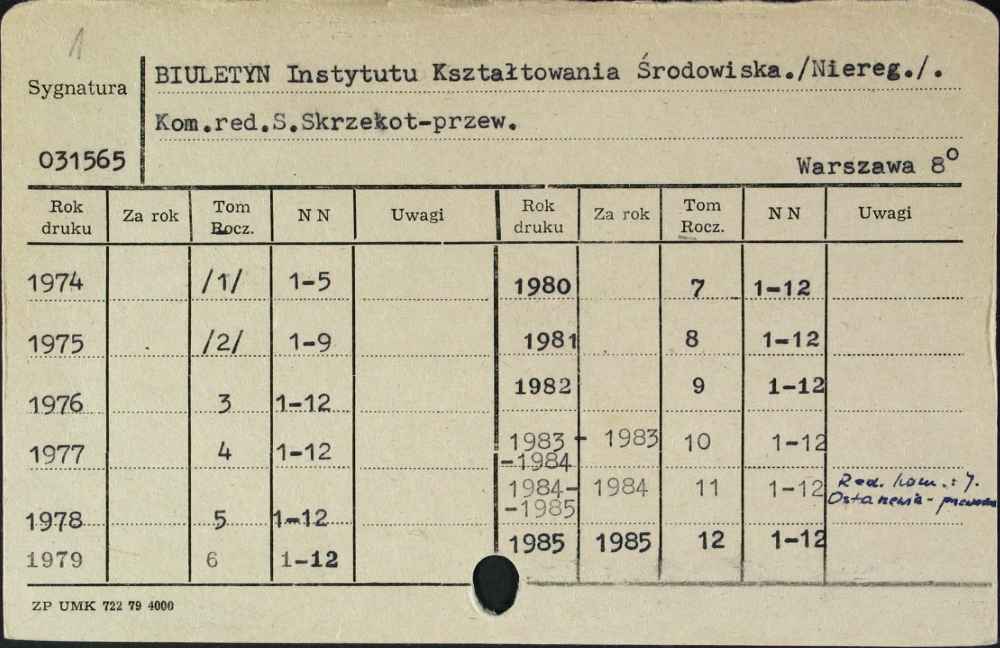 1
Sygnatura
BIULETYN Instytutu Kształtowania Środowiska./Niereg./.
Kom.red.S.Skrzekot-przew.
031565
Warszawa 8°
Rok druku Za rok Tom Rocz. N N Uwagi Rok druku Za rok Tom Rocz. N N Uwagi
1974 /1/ 1-5 1980 7 1-12
1975 /2/ 1-9 1981 8 1-12
1976 3 1-12 1982 9 1-12
1977 4 1-12 1983 - 1983 10 1-12
-1984
1984- 1984 11 1-12 Red. kom.: J.
-1985 Ostanewia-
1978 5 1-12
1979 6 1-12 1985 1985 12 1-12
ZP UMK 722 79 4000